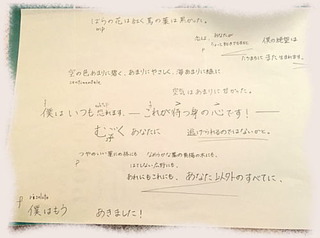 ばらの花は紅く蔦の葉は黒かった。
mp
恋よ、あなたが
p
僕の絶望は
たちまちに また生れます。
空の色あまりに碧く、あまりにやさしく、海あまりに緑に
空気はあまりに甘かった。
僕はいつも恐れます。― これが待つ身の心です! ―
むごく あなたに 逃げられるのではないかと。
つやのいい葉の
はてしない広野にも、
あれにもこれにも、 あなた以外のすべてに、
p risoluto
僕はもう あきました!